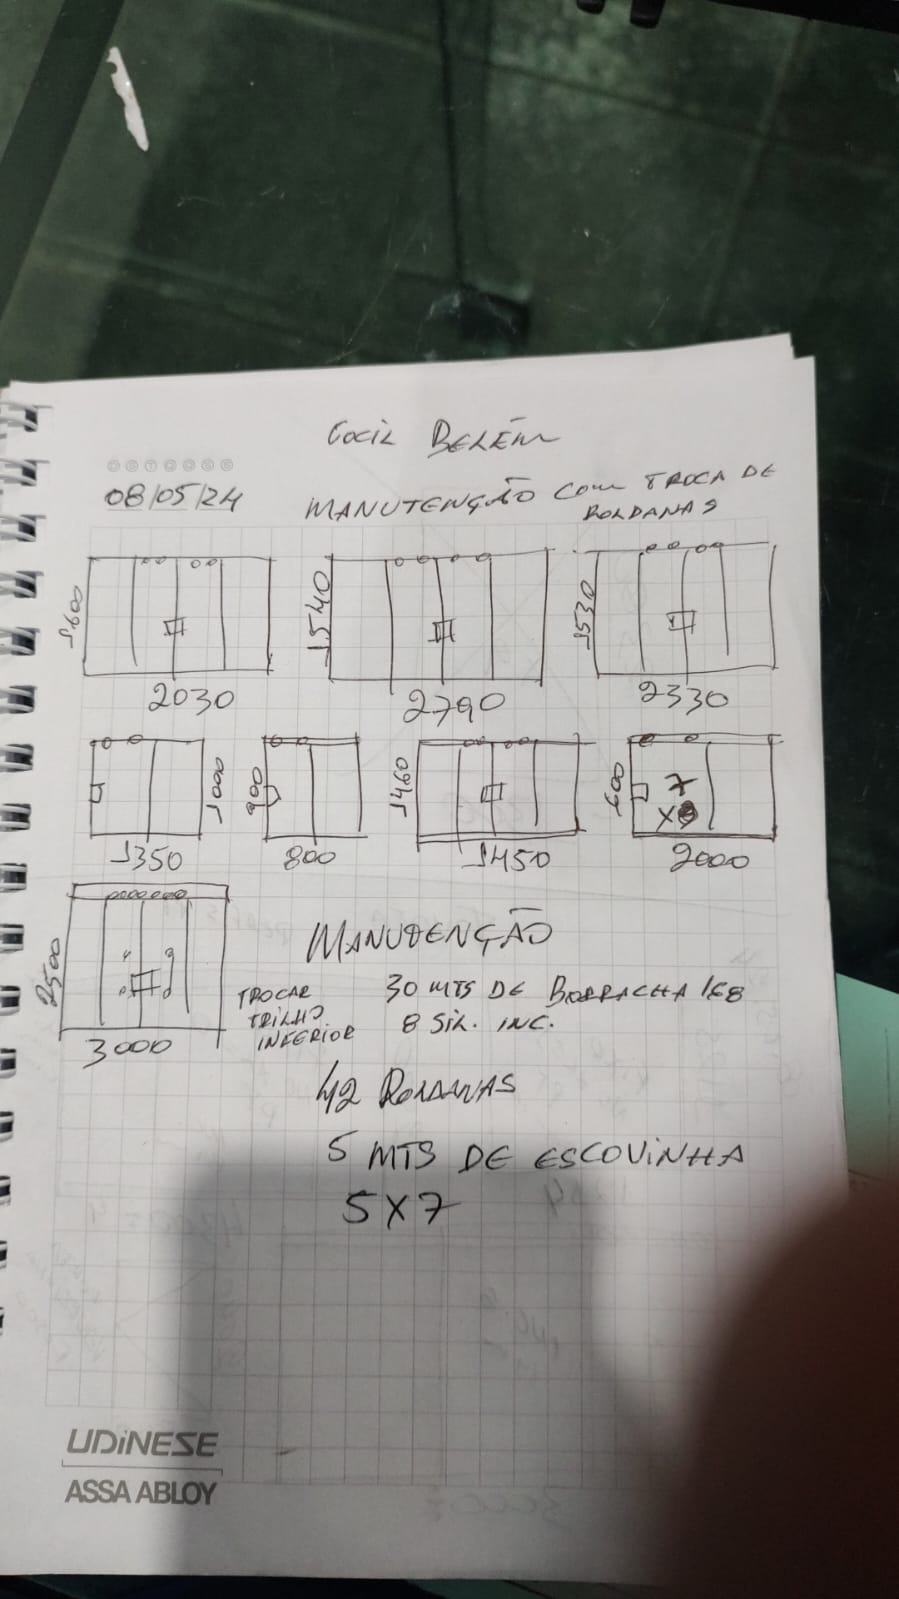 Cocil BELÉM
D S T Q Q S S
08/05/24
MANUTENÇÃO COM TROCA DE
ROLDANAS
1600
2030
1540
2790
1530
2330
1350
1000
800
1460
1450
600
7
2000
2500
3000
MANUTENÇÃO
TROCAR
TRILHO
INFERIOR
30 MTS DE BORRACHA
8 SIL. INC.
42 ROLDANAS
5 MTS DE ESCOVINHA
5X7
UDiNESE
ASSA ABLOY